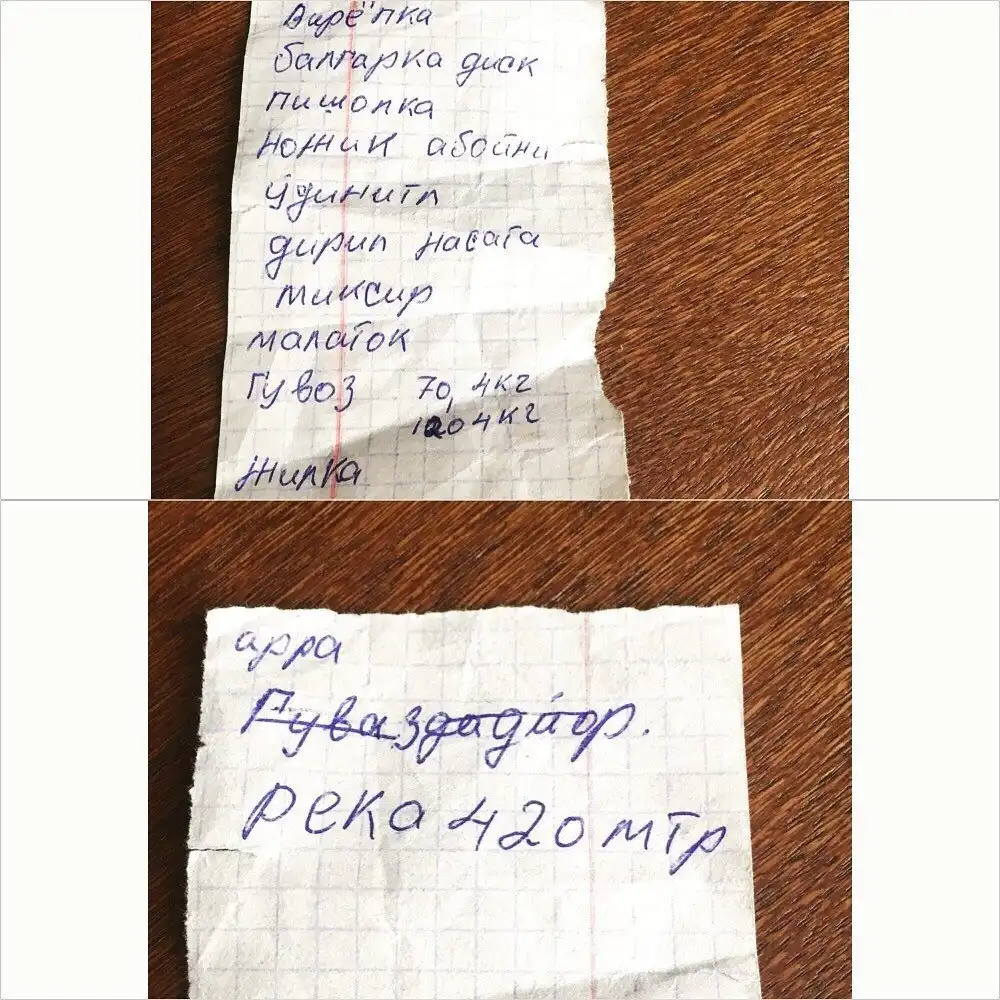 Вирёпка
балгарка диск
пишопка
ножик абойни
удинитл
дирил насата
миксир
малаток
Гувоз 70, 4кг
120 4кг
жилка
арра
Гуваздадиор.
река 420 мтр